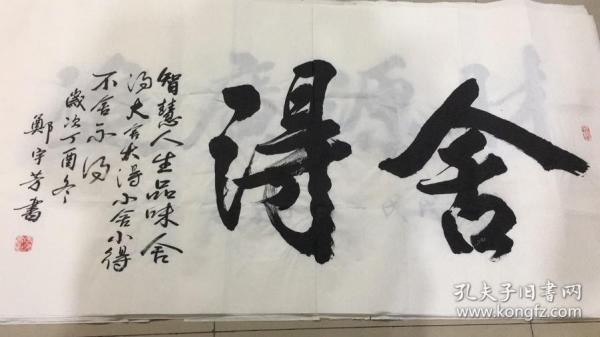 舍得
智慧人生品味舍
得大舍大得小舍小得
不舍不得
歲次丁酉冬
鄭宇芳書
孔夫子旧書网
www.kongfz.com